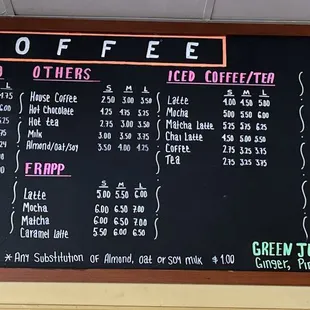 OFFEE
OTHERS
S M L
House Coffee 2.50 3.00 3.50
Hot Chocolate 4.25 4.75 5.25
Hot tea 2.75 3.00 3.25
Milk 3.00 3.50 3.75
Almond/oat/soy 3.50 4.00 4.25
FRAPP
S M L
Latte 5.00 5.50 6.00
Mocha 6.00 6.50 7.00
Matcha 6.00 6.50 7.00
Caramel Latte 5.50 6.00 6.50
ICED COFFEE/TEA
S M L
Latte 4.00 4.50 5.00
Mocha 5.00 5.50 6.00
Matcha Latte 5.75 6.25
Chai Latte 4.50 5.00 5.50
Coffee 2.75 3.25 3.75
Tea 2.75 3.25 3.75
* Any Substitution of Almond, oat or soy milk $1.00
GREEN JU
Ginger, Pi